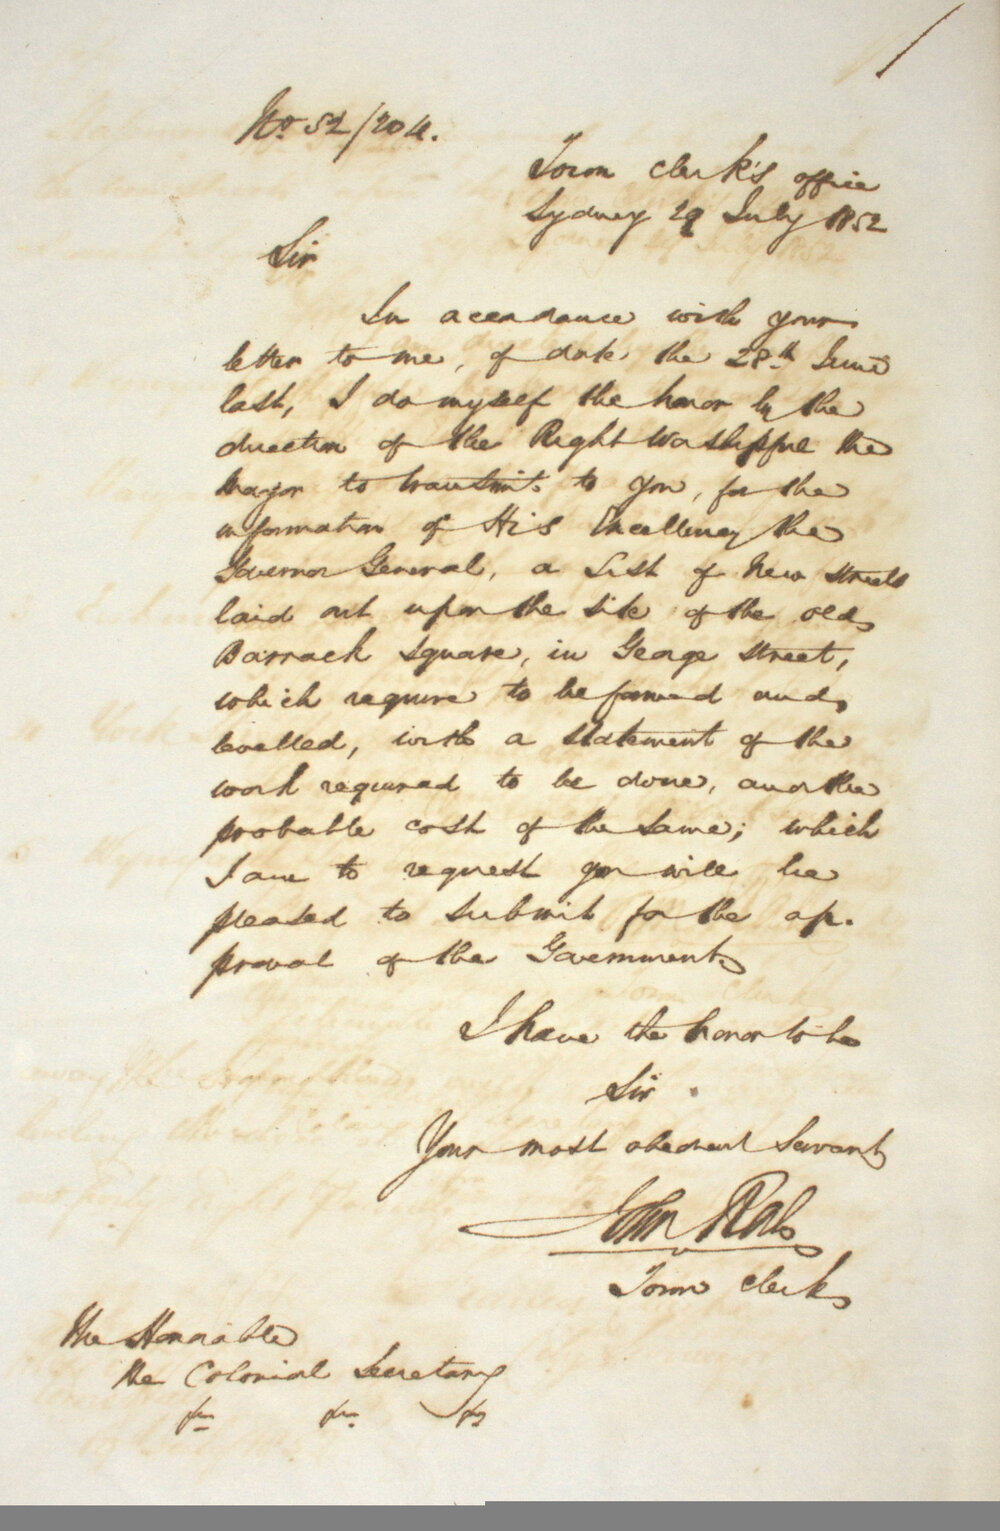 No 52/204.
Town Clerk's office
Sydney 29 July 1852
Sir
In accordance with your
letter to me, of date the 28th June
last, I do myself the honor by the
direction of the Right Worshipful the
Mayor to transmit to you, for the
information of His Excellency the
Governor General, a List of New Streets
laid out upon the site of the old
Barrack Square, in George Street,
which require to be formed and
levelled, with a statement of the
work required to be done, and the
probable cost of the same; which
I am to request you will be
pleased to submit for the ap-
proval of the Government
I have the honor to be
Sir
Your most obedient Servant
John Rae
Town Clerk
The Honorable
the Colonial Secretary